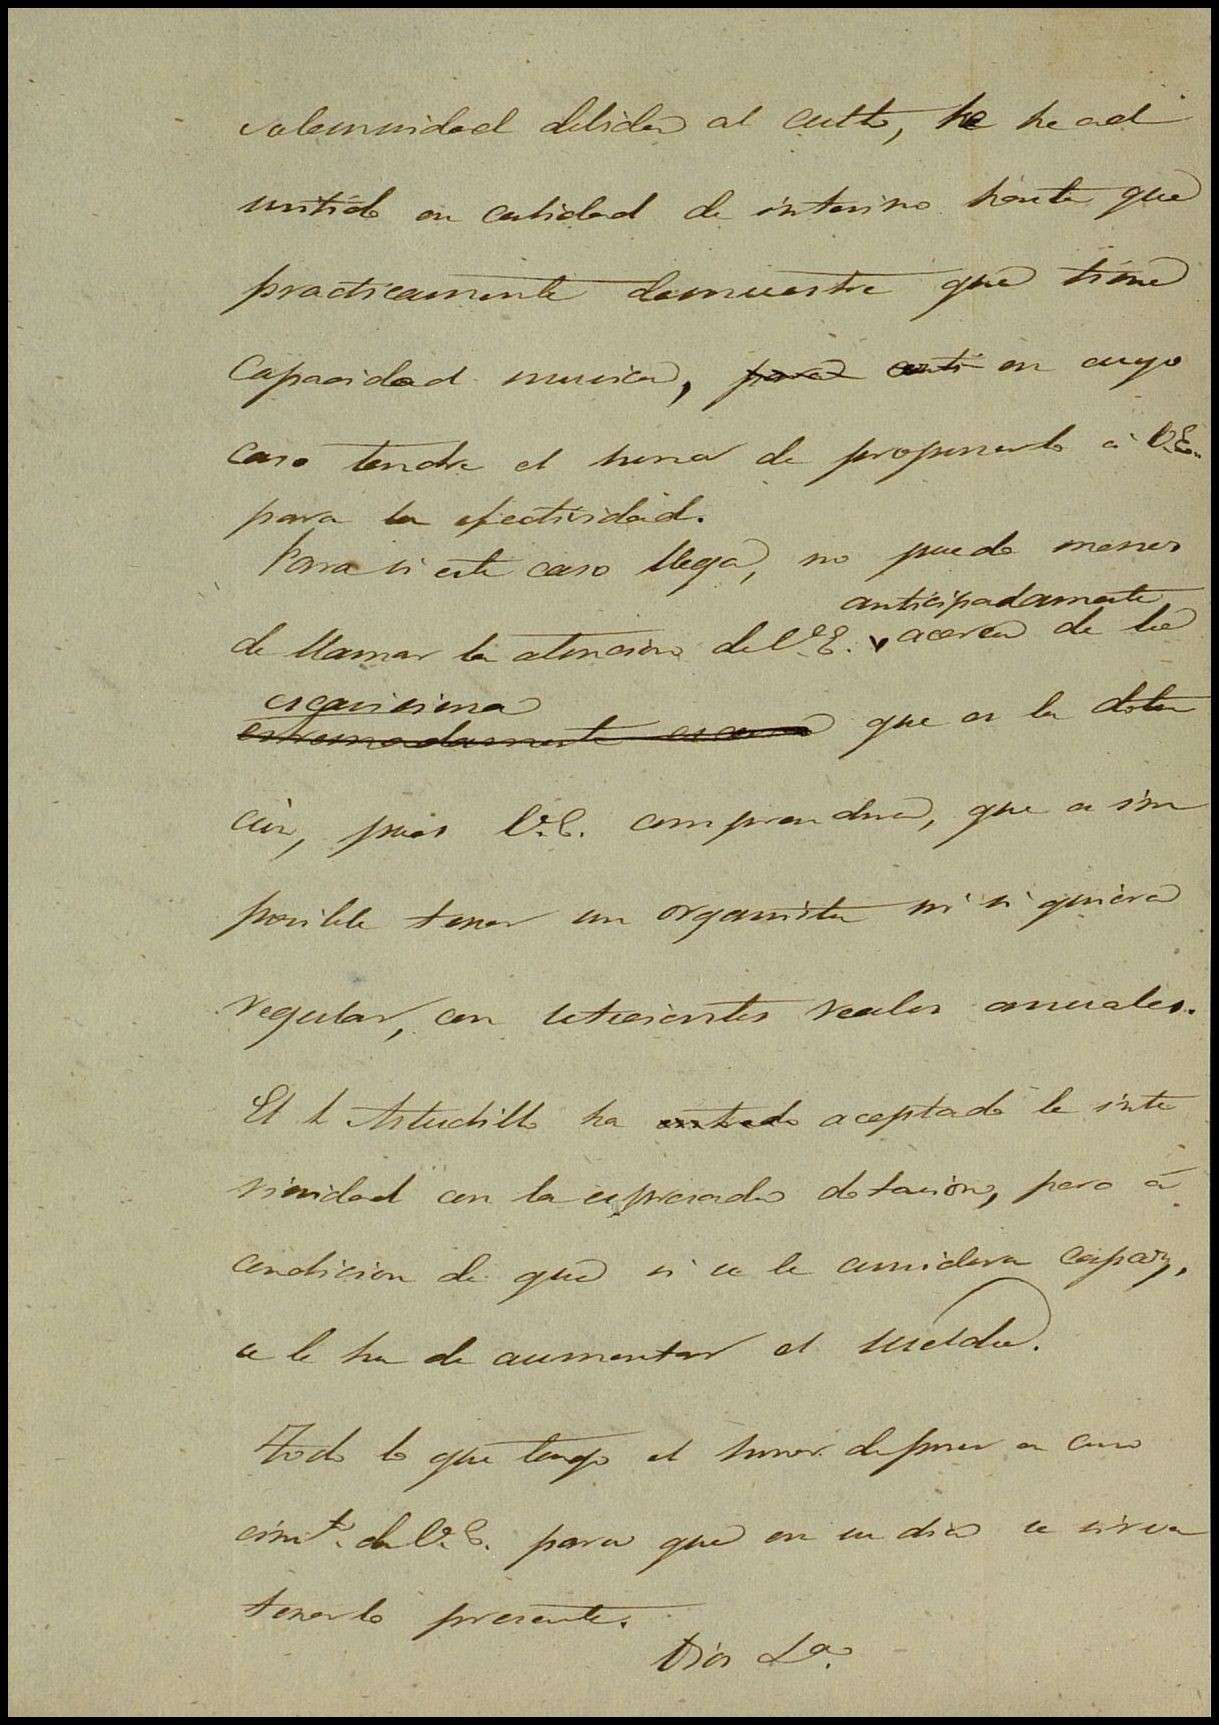 solemnidad debida al culto, he he ad
mitido en calidad de interino hasta que
practicamente demuestre que tiene
capacidad musica, para en cuyo
caso tendre el honor de proponerlo á V.E.
para la efectividad.
Para si este caso llega, no puedo menos
anticipadamente
de llamar la atencion de V.E. acerca de lo
escasisima
estremadamente escasa que es la dota
ción, pues V.E. comprendera, que es im
posible tener un organista ni siquiera
regular, con setecientos reales anuales.
El S. Astudillo ha entrado aceptado la inte
rinidad con la espresada dotacion, pero á
condicion de que si se le considera capaz,
se le ha de aumentar el sueldo.
Todo lo que tengo el honor de poner en cono
cimto. de V.E. para que en su dia se sirva
tenerlo presente.
Dios La.